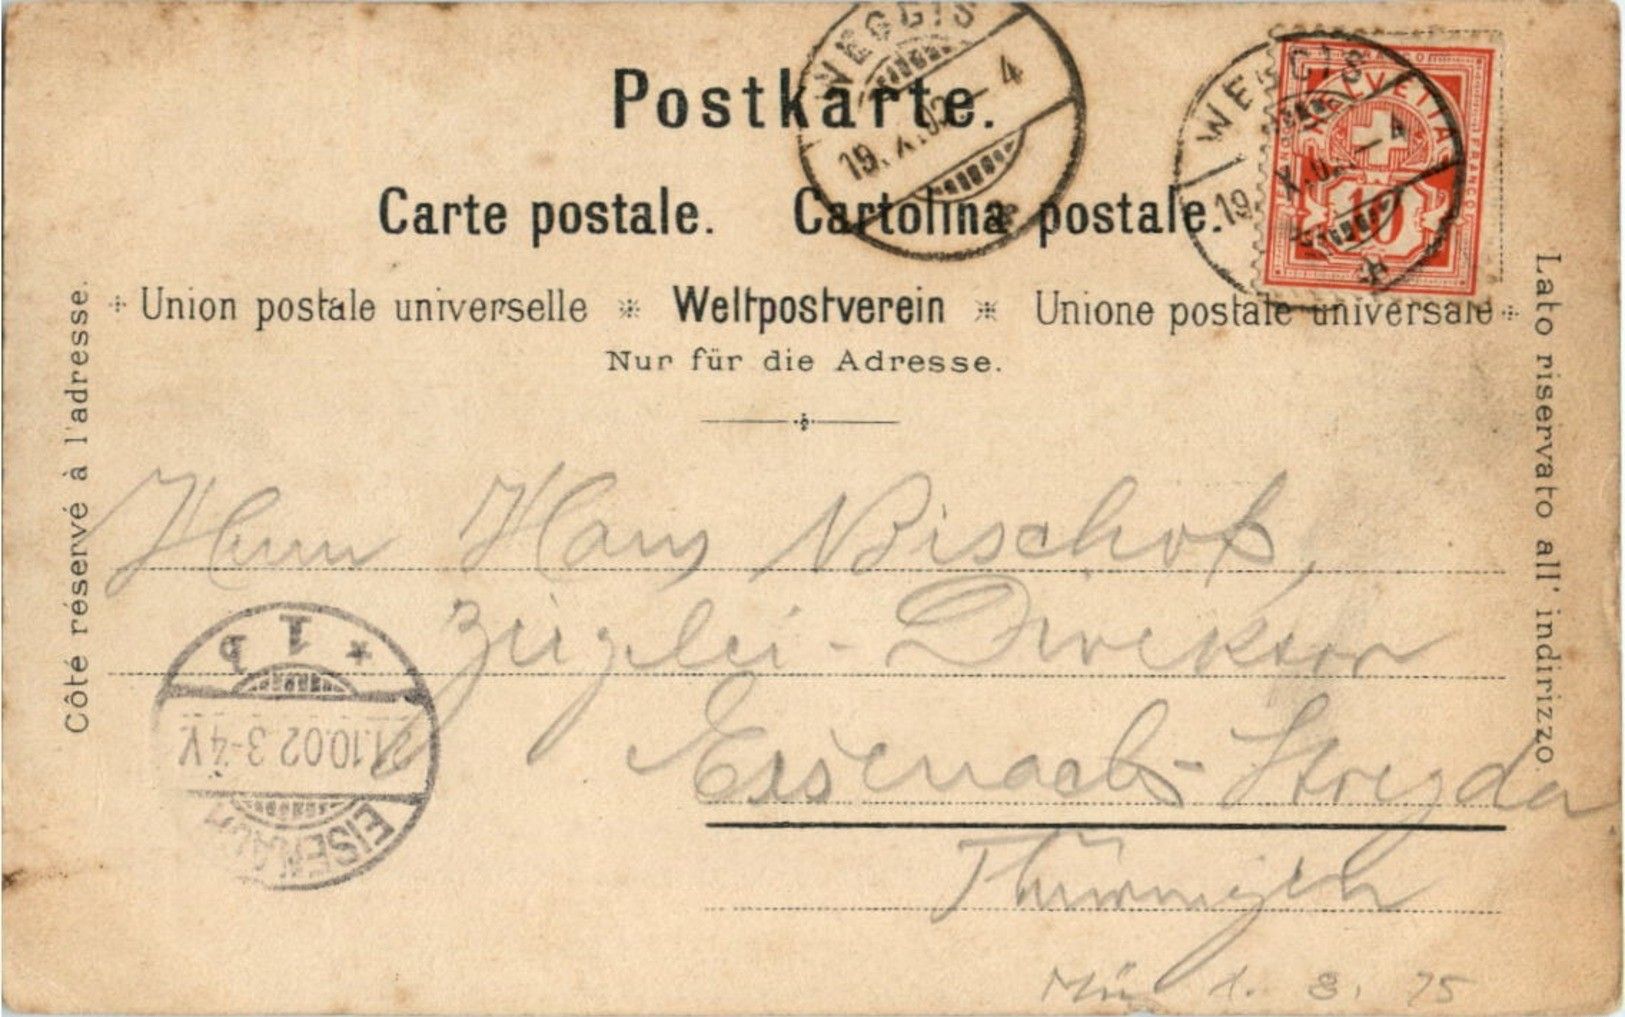 WEGGIS
19. X. 02 – 4
WEGGIS
19. X. 02 – 4
HELVETIA
FRANCO
10
Postkarte.
Carte postale. Cartolina postale.
Union postale universelle ※ Weltpostverein ※ Unione postale universale
Nur für die Adresse.
Côté réservé à l'adresse.
Lato riservato all' indirizzo.
Herrn Hans Bischoff,
Direktor
Eisenach-Stregda
Thüringen
EISENACH
21.10.02 3-4V.
* 1 b
1. 8. 75